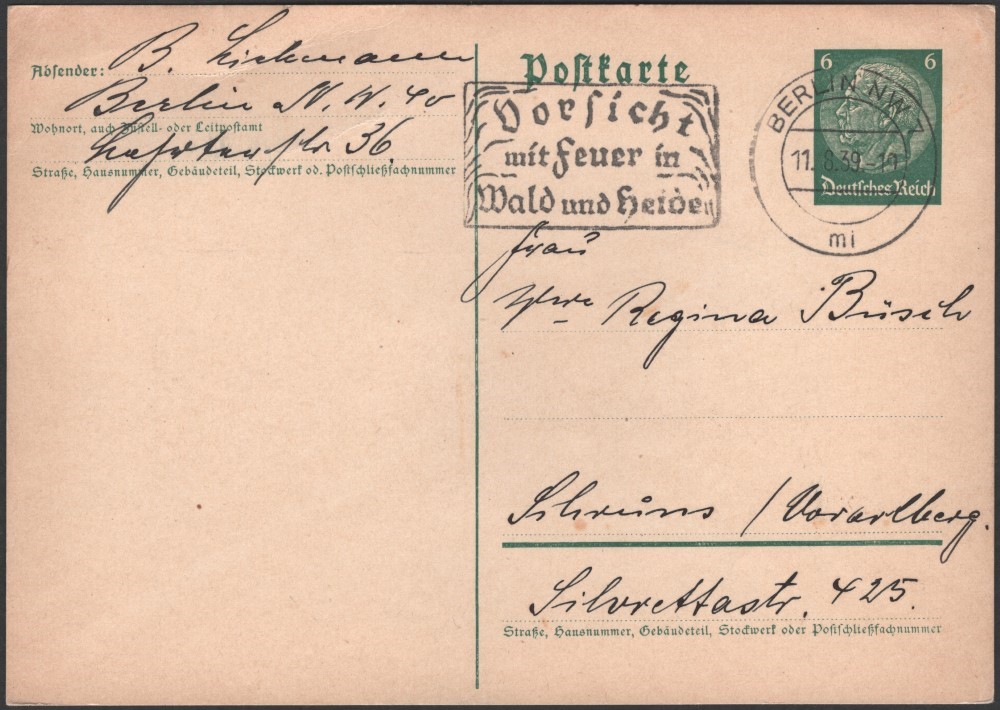 Absender: B. Liekmann
Berlin N.W. 40
Wohnort, auch Zustell- oder Leitpostamt
str. 36
Straße, Hausnummer, Gebäudeteil, Stockwerk od. Postschließfachnummer
Postkarte
Vorsicht
mit Feuer in
Wald und Heide
BERLIN NW 7
11.8.39.-10
mi
6 6
Deutsches Reich
Frau
Wwe Regina Büsch
Schruns / Vorarlberg.
Silvrettastr. 425.
Straße, Hausnummer, Gebäudeteil, Stockwerk oder Postschließfachnummer